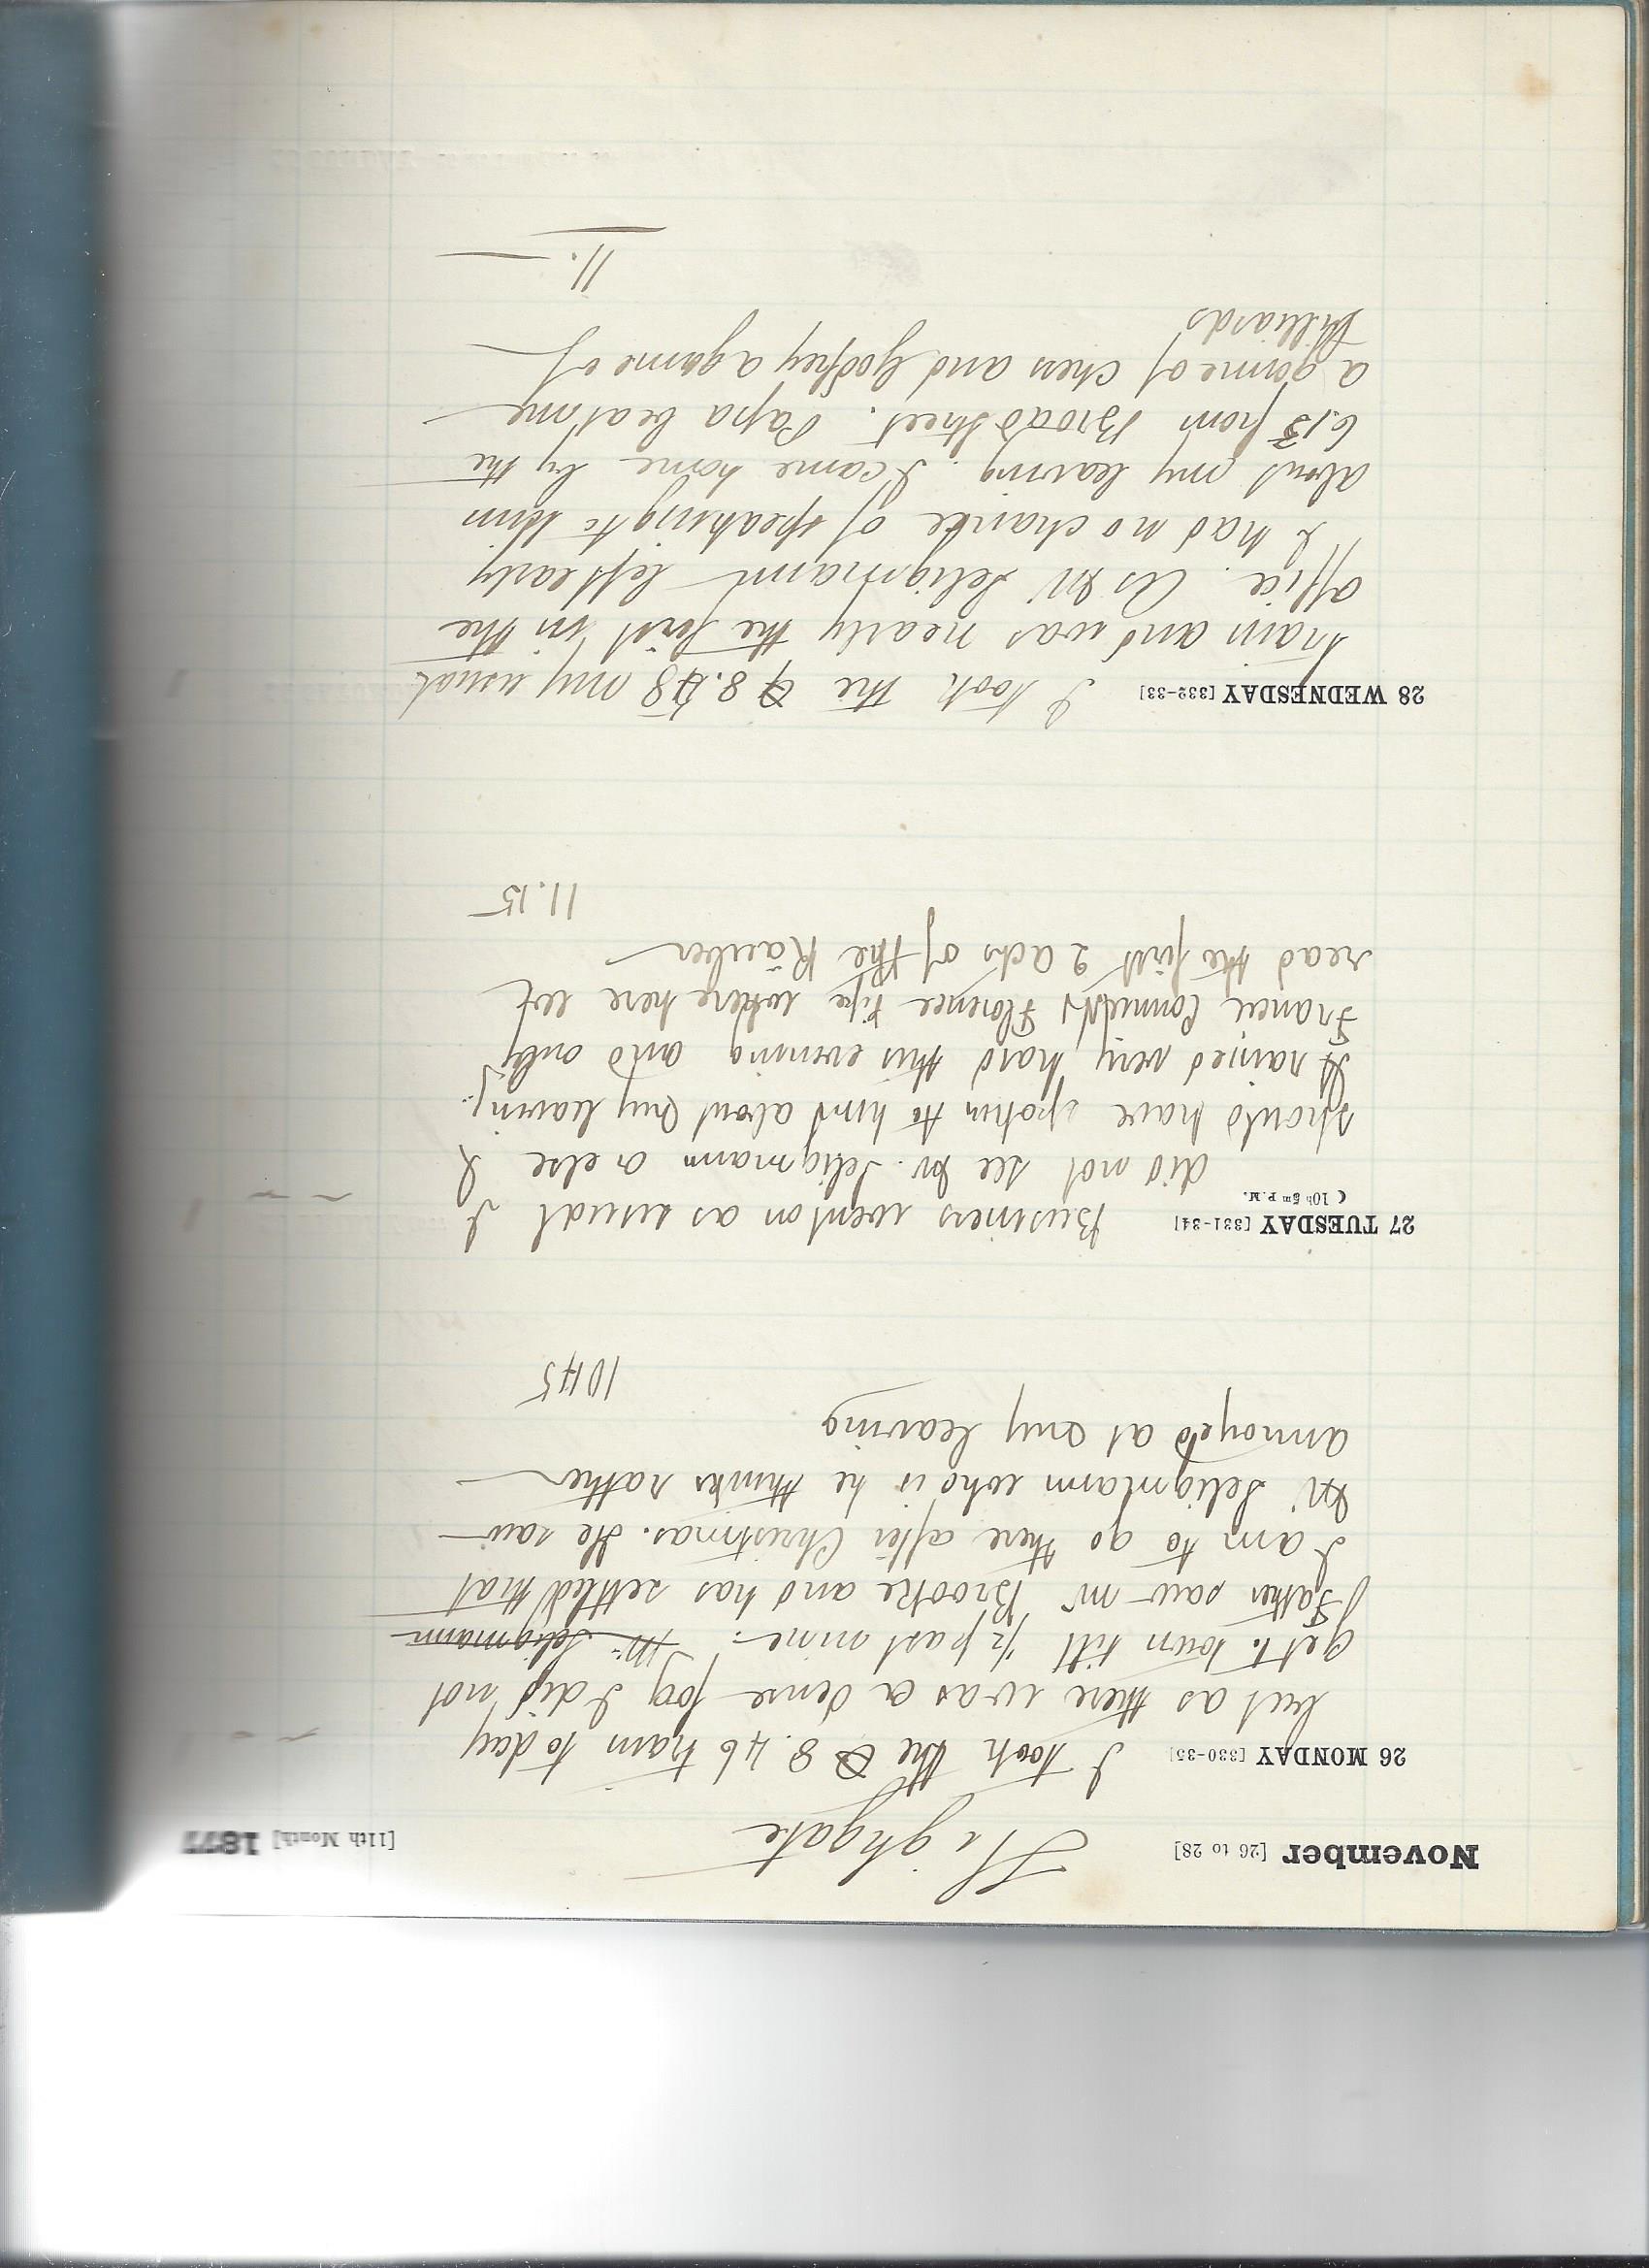 November [26 to 28] [11th Month] 1877
Highgate
26 MONDAY [330-35] I took the 8.46 train to day
but as there was a dense fog I did not
get to town till ½ past nine. Mr. Seligmann
Father saw Mr Brooke and has settled that
I am to go there after Christmas. He saw
Mr Seligmann who is he thinks rather
annoyed at my leaving
10 45
27 TUESDAY [331-34] Business went on as usual I
☾ 10h 5m P.M. did not see Mr. Seligmann or else I
should have spoken to him about my leaving.
It rained very hard this evening and only
Frances Florence were here we
read the first 2 acts of the Räuber
11.15
28 WEDNESDAY [332-33] I took the 8.48 my usual
train and was nearly the first in the
office. As Mr Seligmann left early
I had no chance of speaking to him
about my leaving. I came home by the
6.13 from Broad Street. Papa beat me
a game of chess and Godfrey a game of
Billiards
11.